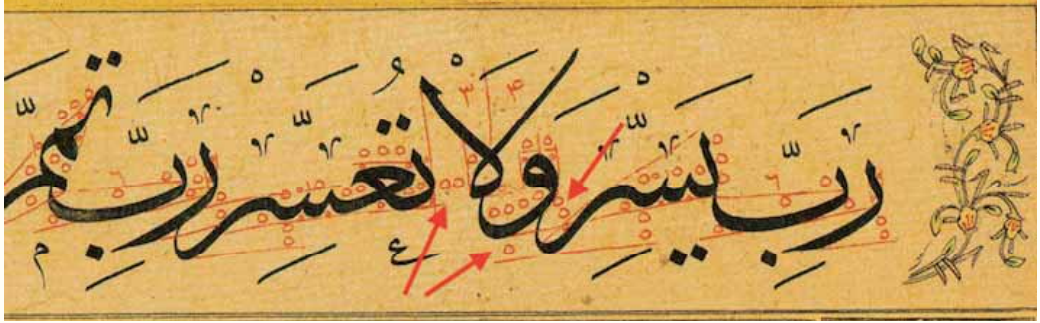 رَبِّ يَسِّرْ وَلَا تُعَسِّرْ رَبِّ تَمِّمْ